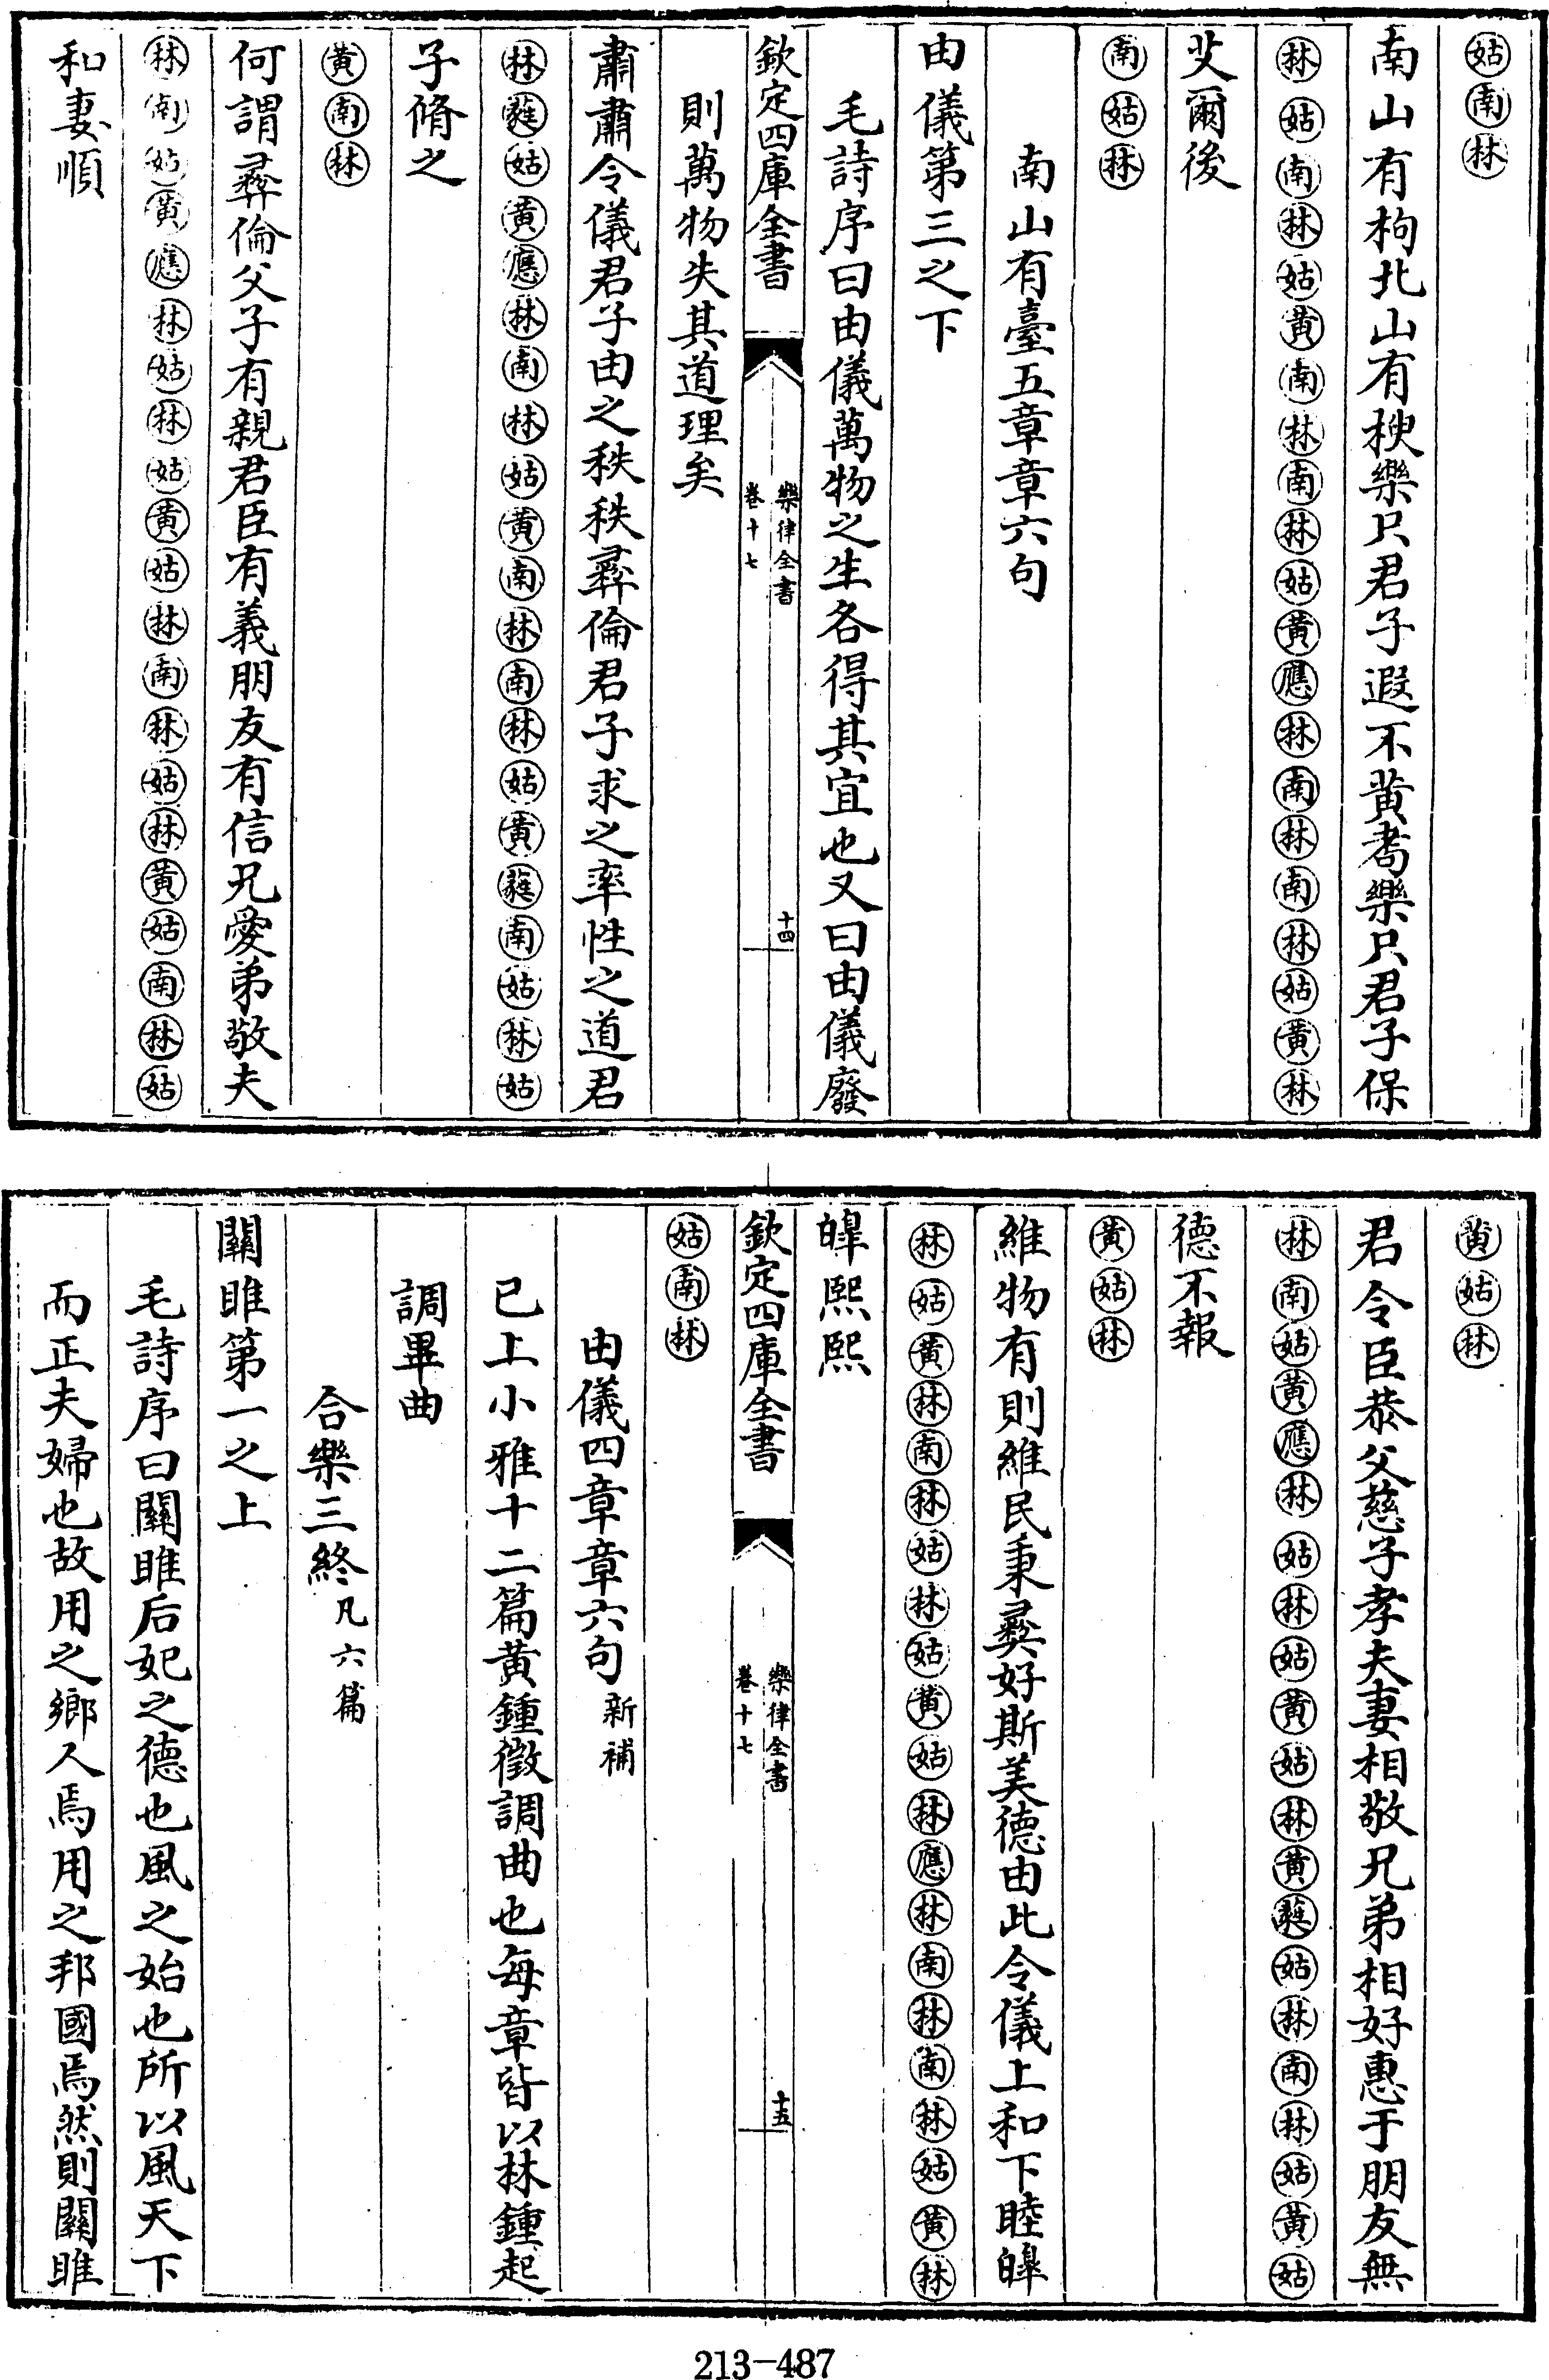 姑南林
南山有枸北山有楰樂只君子遐不黃耇樂只君子保
林姑南林姑黃南林南林姑黃應林南林南林姑黃林
艾爾後
南姑林
南山有臺五章章六句
由儀第三之下
毛詩序曰由儀萬物之生各得其宜也又曰由儀廢
欽定四庫全書
樂律全書
卷十七
十四
則萬物失其道理矣
肅肅令儀君子由之秩秩彞倫君子求之率性之道君
林蕤姑黃應林南林姑黃南林南林姑黃蕤南姑林姑
子脩之
黃南林
何謂彞倫父子有親君臣有義朋友有信兄愛弟敬夫
林南姑黃應林姑林姑黃姑林南林姑林黃姑南林姑
和妻順
黃姑林
君令臣恭父慈子孝夫妻相敬兄弟相好惠于朋友無
林南姑黃應林姑林姑黃姑林黃蕤姑林南林姑黃姑
德不報
黃姑林
維物有則維民秉彞好斯美德由此令儀上和下睦皥
林姑黃林南林姑林姑黃姑林應林南林南林姑黃林
皥熙熙
欽定四庫全書
樂律全書
卷十七
十五
姑南林
由儀四章章六句新補
已上小雅十二篇黃鍾徵調曲也每章皆以林鍾起
調畢曲
合樂三終凡六篇
關雎第一之上
毛詩序曰關雎后妃之德也風之始也所以風天下
而正夫婦也故用之鄉人焉用之邦國焉然則關雎
213-487